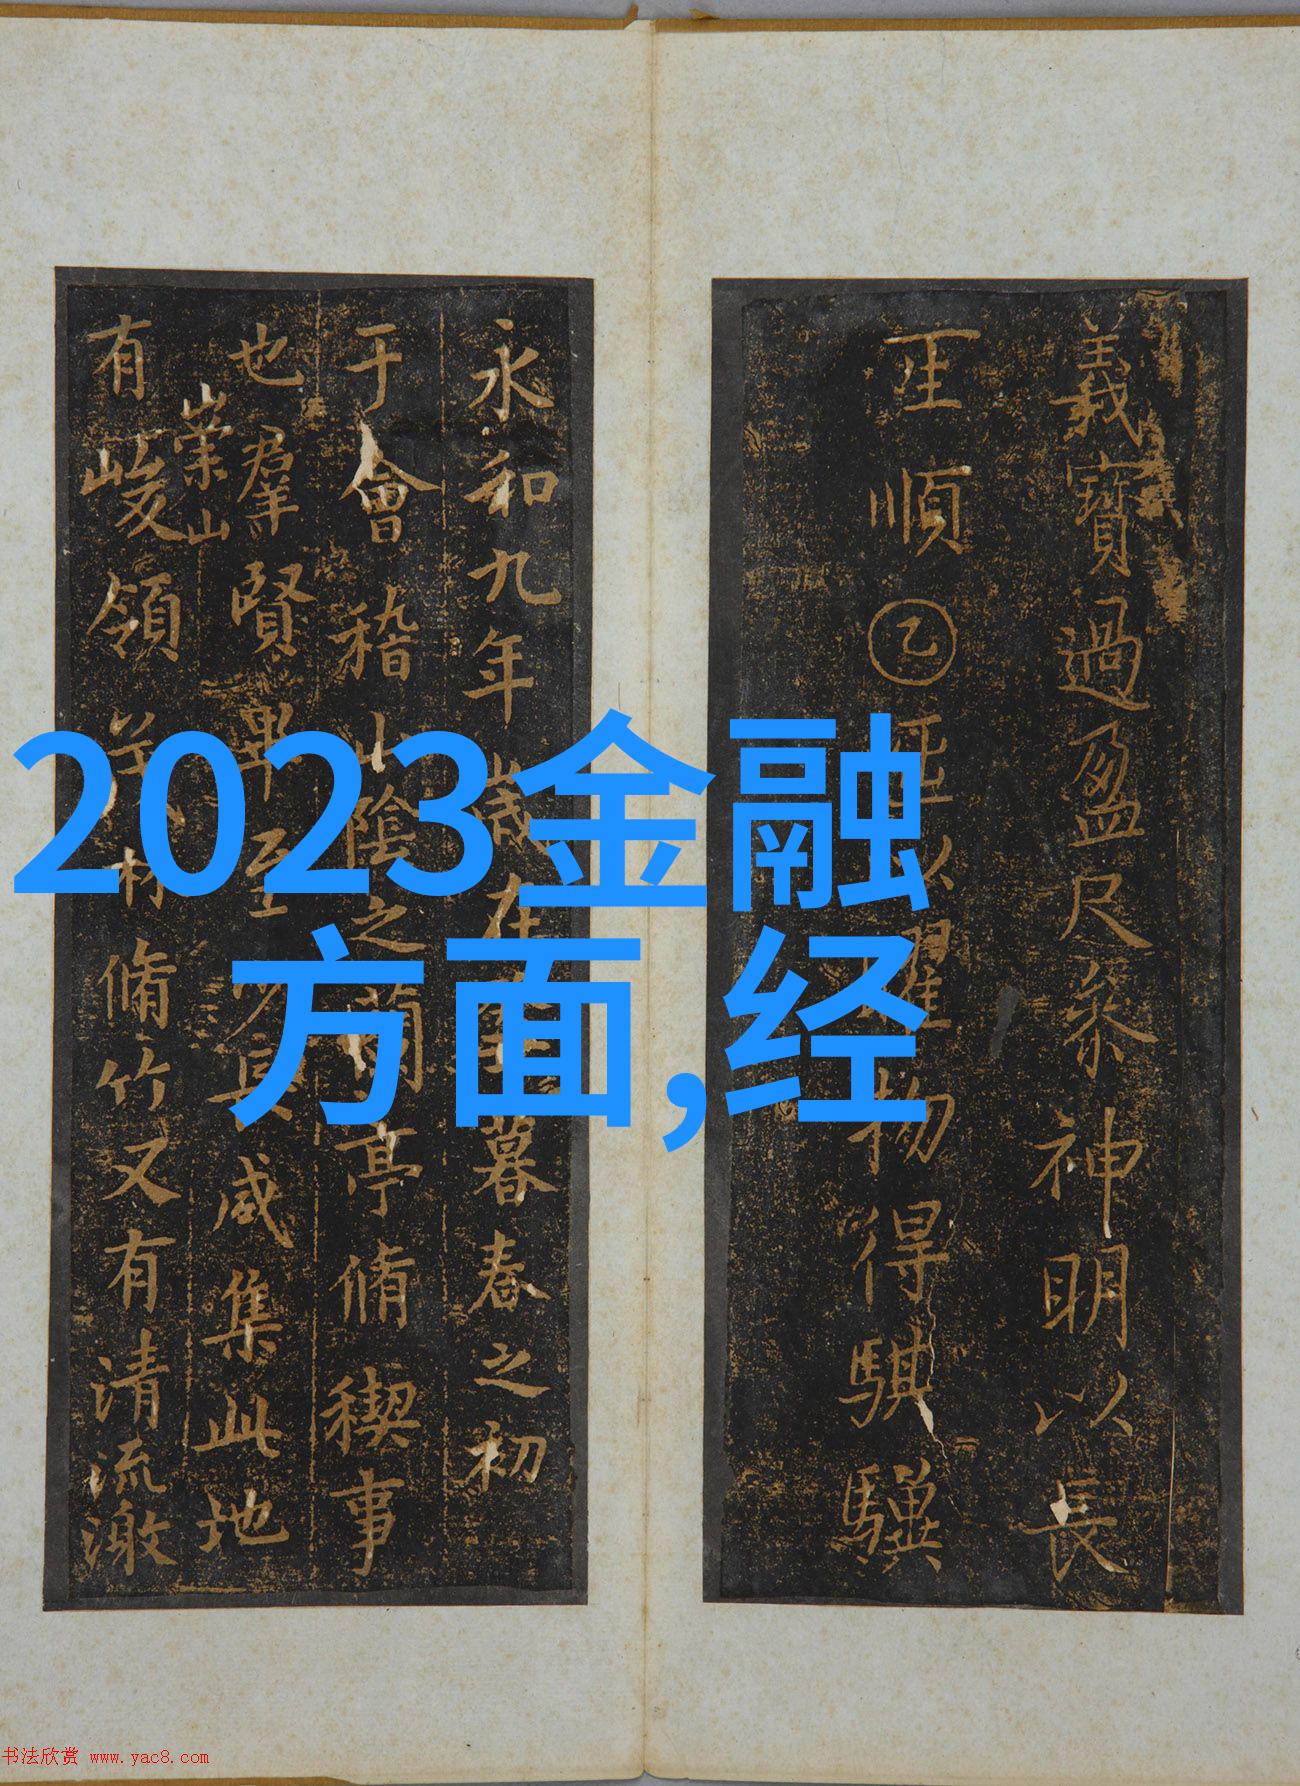 2023金融
方面,经
義寶過盈尺參神明以長
王順乙
以耀物得騏驥
永和九年歲在暮春之初
于會稽山陰之蘭亭脩禊事
也群賢畢至少長咸集此地
崇山
有峻領茂林脩竹又有清流激
书法欣赏 www.yac8.com